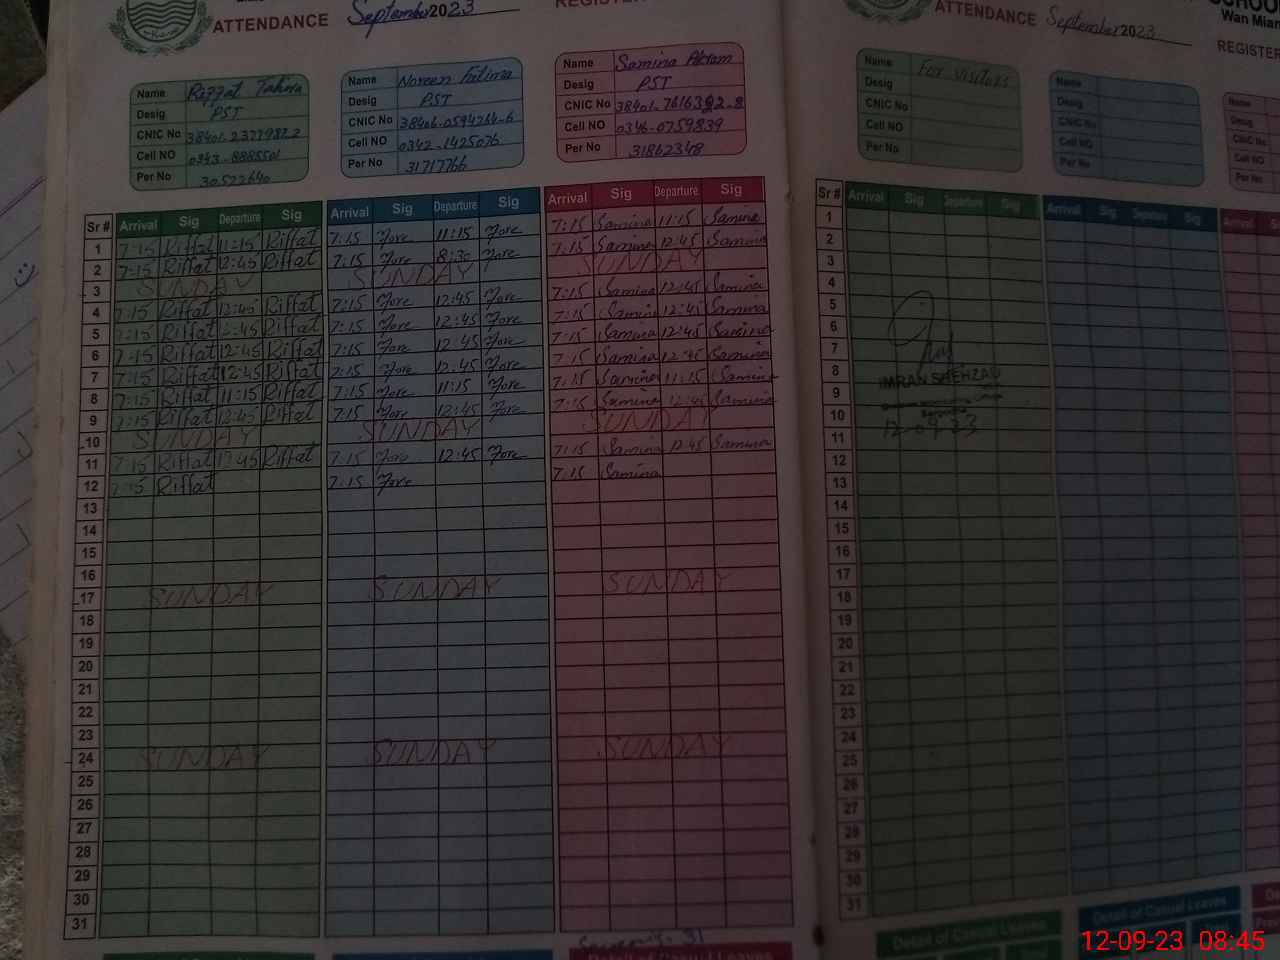 ATTENDANCE September 2023 REGISTER
Name Riffat Tahira
Desig PST
CNIC No
Cell NO 0343-8885501
Per No 30522640
Name Noreen Fatima
Desig PST
CNIC No 38406-0594264-6
Cell NO 0342-1425076
Per No 31717766
Name Samina Aktam
Desig PST
CNIC No
Cell NO 0346-0759839
Per No 31862348
Sr # Arrival Sig Departure Sig Arrival Sig Departure Sig Arrival Sig Departure Sig
1 7:15 Riffat 11:15 Riffat 7:15 11:15 7:15 Samina 11:15 Samina
2 7:15 Riffat 12:45 Riffat 7:15 8:30 7:15 Samina 12:45 Samina
3 SUNDAY SUNDAY SUNDAY
4 7:15 Riffat 12:45 Riffat 7:15 12:45 7:15 Samina 12:45 Samina
5 7:15 Riffat 12:45 Riffat 7:15 12:45 7:15 Samina 12:45 Samina
6 7:15 Riffat 12:45 Riffat 7:15 12:45 7:15 Samina 12:45 Samina
7 7:15 Riffat 12:45 Riffat 7:15 12:45 7:15 Samina 12:45 Samina
8 7:15 Riffat 11:15 Riffat 7:15 11:15 7:15 Samina 11:15 Samina
9 7:15 Riffat 12:45 Riffat 7:15 12:45 7:15 Samina 12:45 Samina
10 SUNDAY SUNDAY SUNDAY
11 7:15 Riffat 12:45 Riffat 7:15 12:45 7:15 Samina 12:45 Samina
12 7:15 Riffat 7:15 7:15 Samina
13
14
15
16
17 SUNDAY SUNDAY SUNDAY
18
19
20
21
22
23
24 SUNDAY SUNDAY SUNDAY
25
26
27
28
29
30
31
SCHOOL
Wan Mian
ATTENDANCE September 2023 REGISTER
Name For visitors
Desig
CNIC No
Cell NO
Per No
Name
Desig
CNIC No
Cell NO
Per No
Name
Desig
CNIC No
Cell NO
Per No
Sr # Arrival Sig Departure Sig Arrival Sig Departure Sig Arrival
1
2
3
4
5
6
7
8
IMRAN SHEHZAD
9
10
12-09-23
11
12
13
14
15
16
17
18
19
20
21
22
23
24
25
26
27
28
29
30
31
Detail of Casual Leaves
Detail of Casual Leaves
Detail of Casual Leaves
12-09-23 08:45